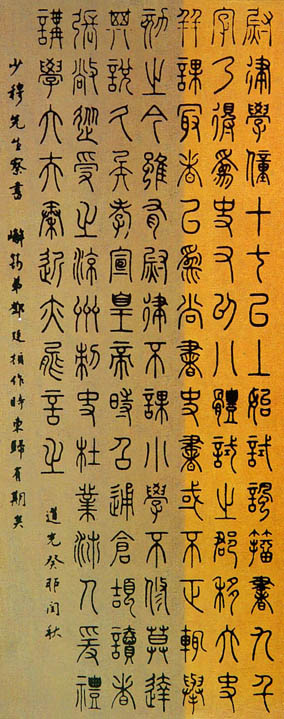 尉律學僮十七以上始試諷籀書九千
字乃得為史又以八體試之郡移太史
并課最者以為尚書史書或不正輒舉
劾之今雖有尉律不課小學不修莫達
其說久矣孝宣皇帝時召通倉頡讀者
張敞從受之涼州刺史杜業沛人爰禮
講學大夫秦近亦能言之
道光癸卯閏秋
少穆先生察書 嶰筠弟鄧廷楨作時東歸有期矣